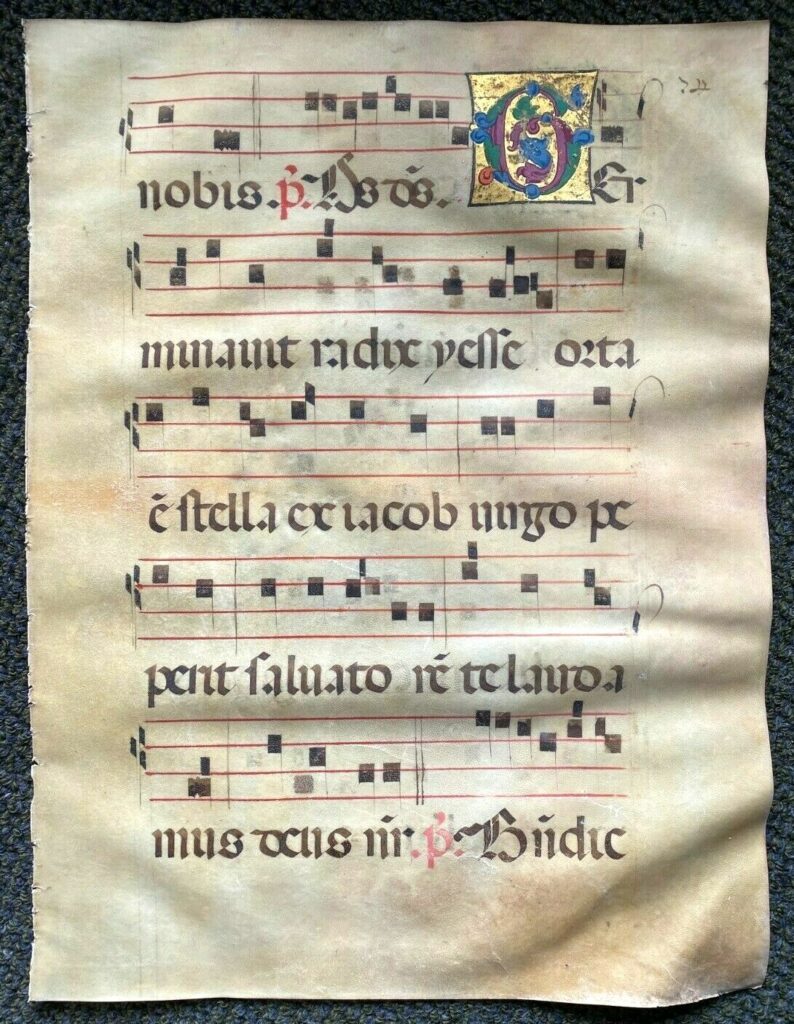 nobis. p̄. Ds dn̄s. GEr
minauit radix yesse orta
ē stella ex iacob uirgo pe
perit saluato rē te lauda
mus deus nr̄. p̄. Bn̄dic